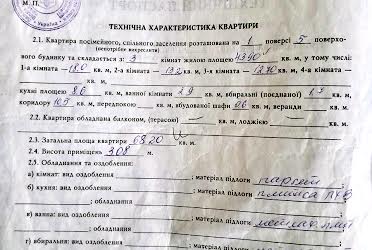 М. П.
Україна
ТЕХНІЧНА ХАРАКТЕРИСТИКА КВАРТИРИ
2.1. Квартира посімейного, спільного заселення розташована на 1 поверсі 5 поверхо-
(непотрібне викреслити)
вого будинку та складається з 3 кімнат жилою площею кв. м, у тому числі:
1-а кімната — 18.0 кв. м, 2-а кімната — 13.2 кв. м, 3-я кімната — 12.70 кв. м, 4-а кімната —
кв. м,
кухні площею 8.6 кв. м, ванної кімнати 2.9 кв. м, вбиральні (поєднаної) 1.7 кв. м,
коридору 10.5 кв. м, передпокою — кв. м, вбудованої шафи 0.6 кв. м, веранди — кв. м,
2.2. Квартира обладнана балконом, (терасою) — кв. м, лоджією — кв. м.
2.3. Загальна площа квартири 68.20 кв. м.
2.4. Висота приміщень 3.08 м.
2.5. Обладнання та оздоблення:
а) кімнати: вид оздоблення ; матеріал підлоги паркет
б) кухня: вид оздоблення ; матеріал підлоги плитка
в) ванна: вид оздоблення ; матеріал підлоги
г) вбиральня: вид оздоблення ; матеріал підлоги